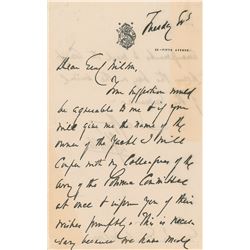 Tuesday
FIFTH AVENUE
Dear Genl Wilson,
Your suggestion would
be agreeable to me & if you
will give me the name of the
owner of the Yacht I will
confer with my Colleagues of the
Committee
at once & inform you of their
wishes promptly. This is neces-
sary because we have made